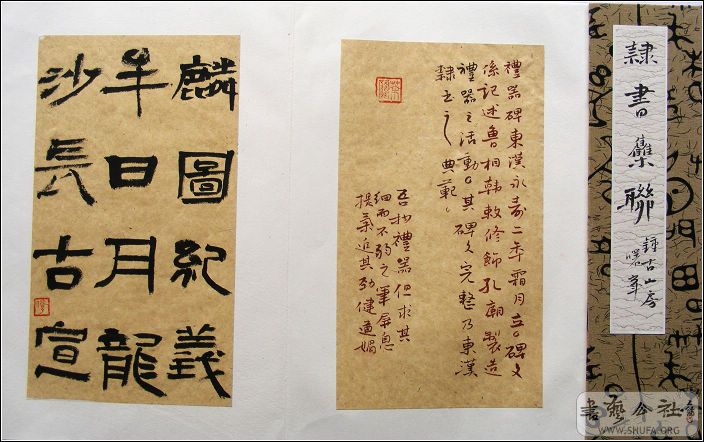 隸書集聯
古山房
禮器碑東漢永壽二年霜月立。碑文
係記述魯相韓敕修飾孔廟製造
禮器之活動。其碑文完整乃東漢
隸書之典範。
吾抄禮器但求其
細而不弱之筆屏息
提氣追其勁健遒媚
麟圖紀義
年日月龍
沙長古宣
書藝公社
WWW.SHUFA.ORG